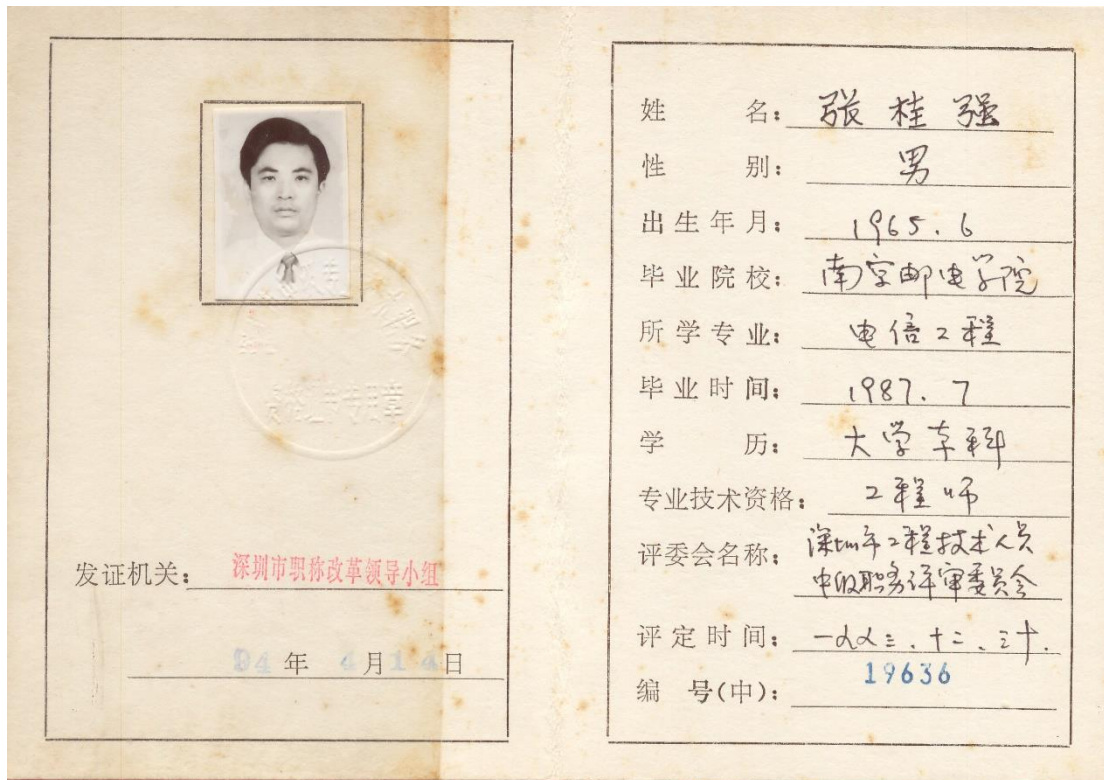 发证机关：深圳市职称改革领导小组
94年4月14日
资格证书专用章
姓名：张桂强
性别：男
出生年月：1965.6
毕业院校：南京邮电学院
所学专业：电信工程
毕业时间：1987.7
学历：大学本科
专业技术资格：工程师
评委会名称：深圳市工程技术人员
中级职务评审委员会
评定时间：一九九三.十二.三十.
编号(中)：19636